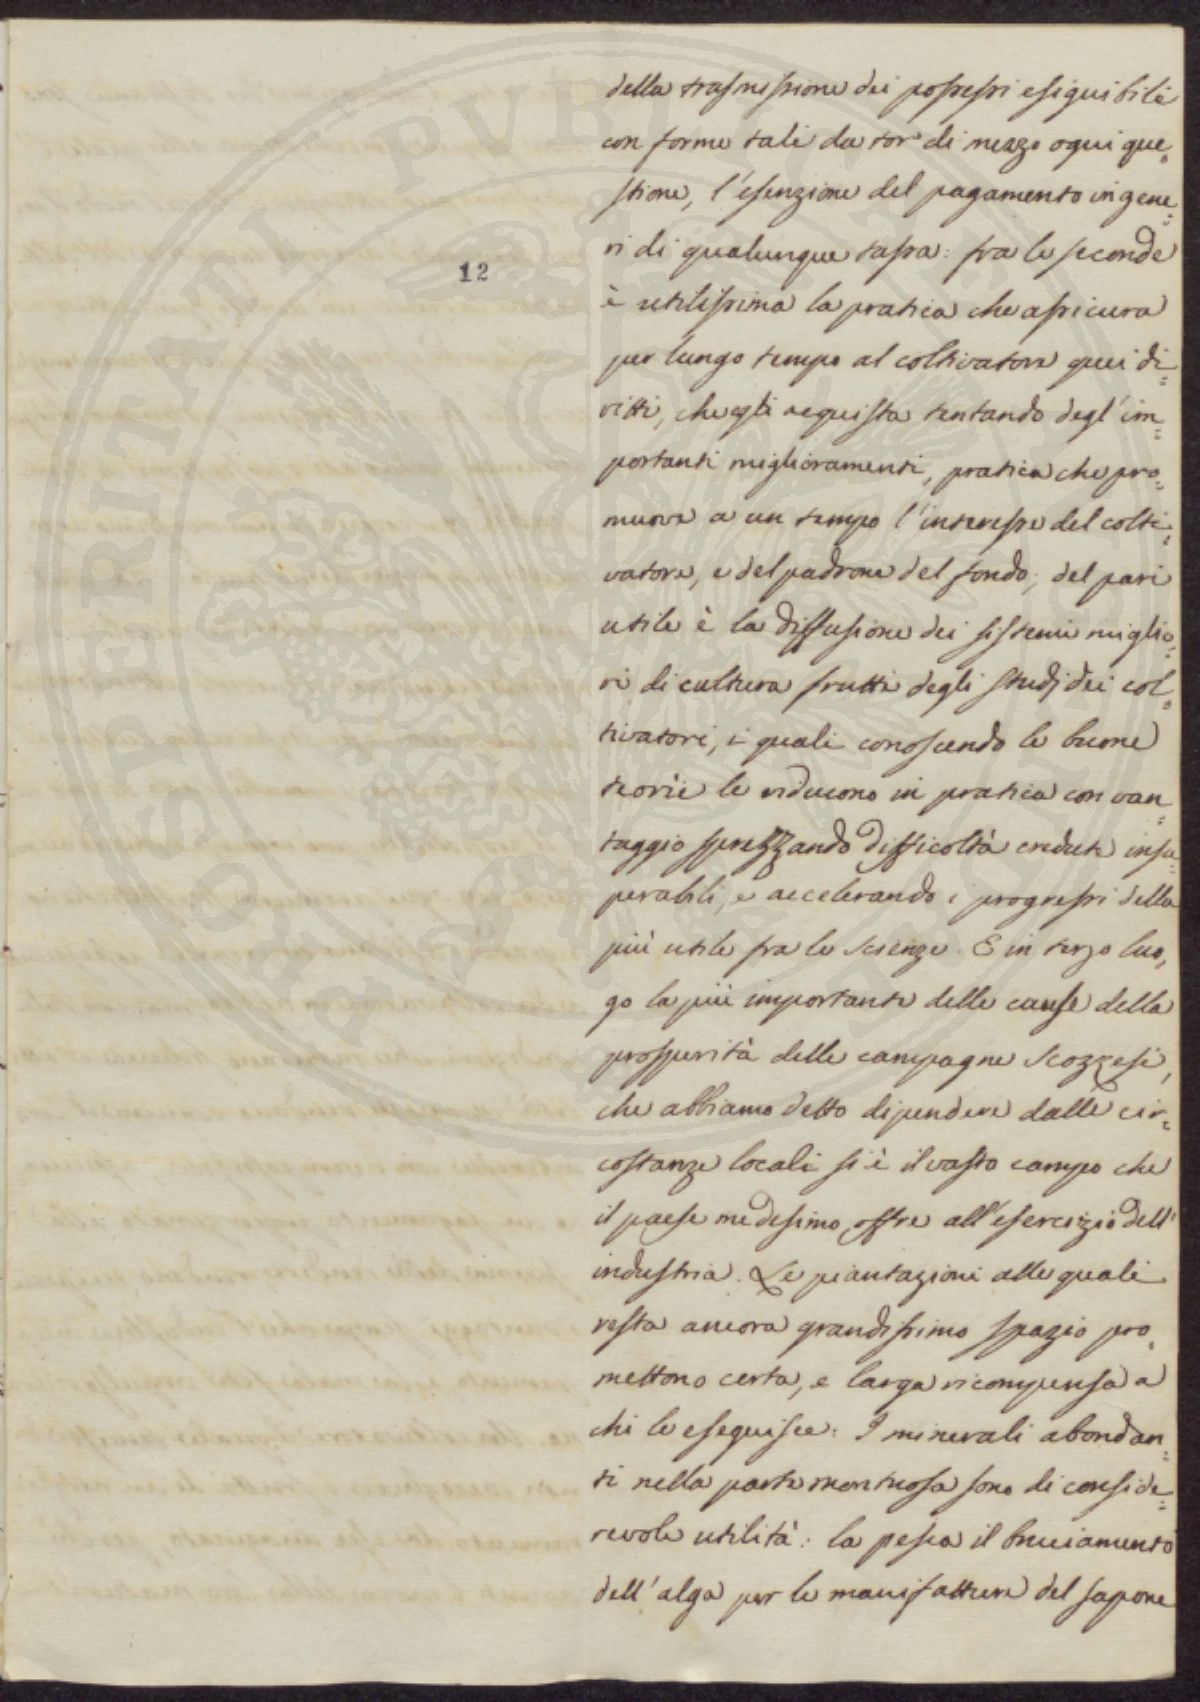 12
della trasmissione dei possessi esiguibile
con forme tali da tor di mezzo ogni que=
stione, l'esenzione del pagamento in gene=
ri di qualunque tassa: fra le seconde
è utilissima la pratica che assicura
per lungo tempo al coltivatore quei di=
ritti, che egli acquista tentando degl'im=
portanti miglioramenti, pratica che pro=
muove a un tempo l'interesse del colti=
vatore, e del padrone del fondo; del pari
utile è la diffusione dei sistemi miglio=
ri di cultura frutti degli studj dei col=
tivatori, i quali conoscendo le buone
teorie le riducono in pratica con van=
taggio sprezzando difficoltà credute insu=
perabili, e accelerando i progressi della
più utile fra le scienze. E in terzo luo=
go la più importante delle cause della
prosperità delle campagne Scozzesi,
che abbiamo detto dipendere dalle cir=
costanze locali si è il vasto campo che
il paese medesimo offre all'esercizio dell'
industria. Le piantazioni alle quali
resta ancora grandissimo spazio pro=
mettono certa, e larga ricompensa a
chi le eseguisce: I minerali abondan=
ti nella parte montuosa sono di conside=
revole utilità: la pesca il bruciamento
dell'alga per le manifatture del sapone
PROSPERITATI PVBLICAE